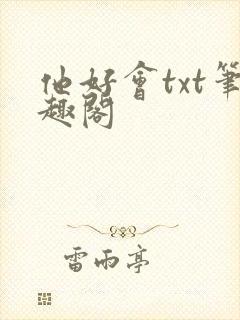 他好會txt筆
趣閣
雷雨亭